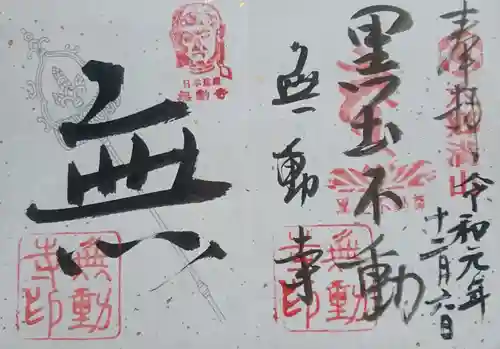 奉拝
令和元年
十二月六日
黒玉不動
無動寺
無
無動寺
無動寺印
無動寺印